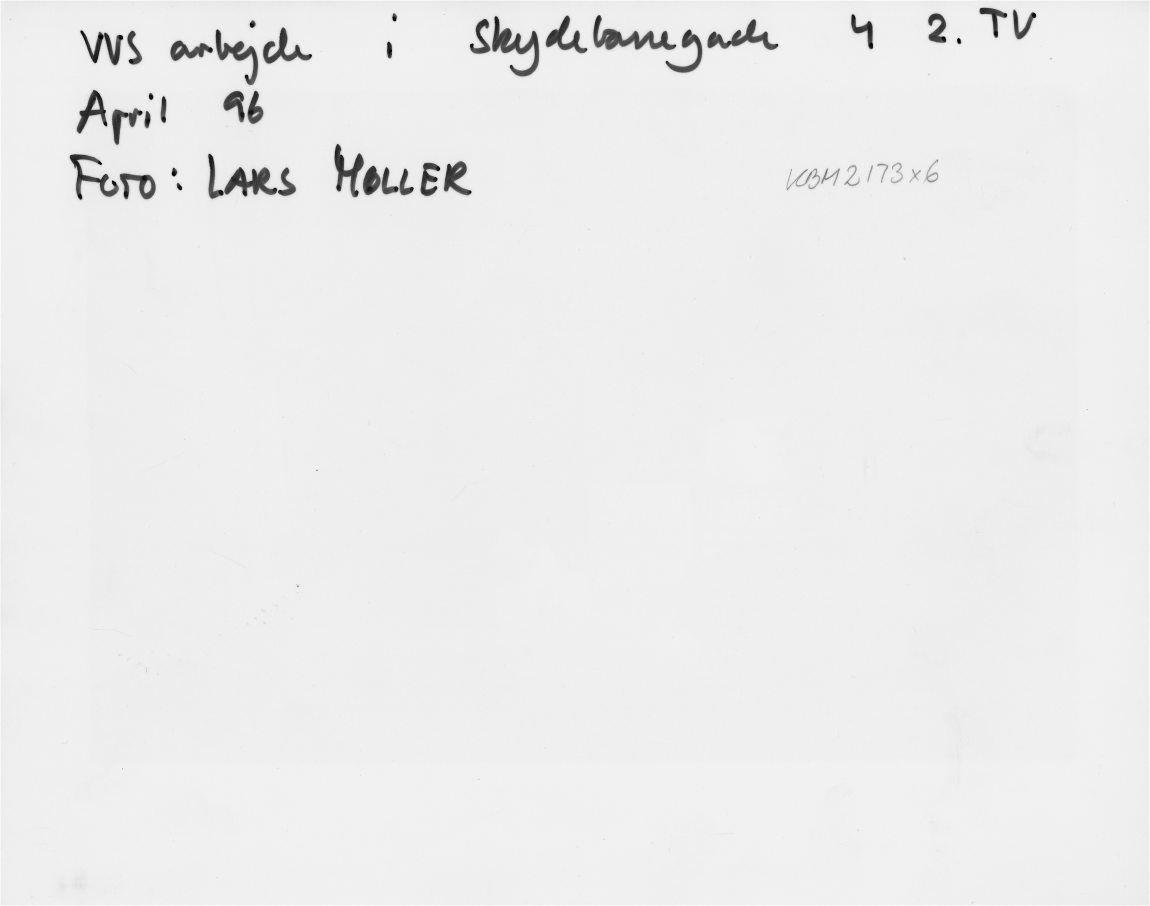 VVS arbejde i Skydebanegade 4 2. TV
April 96
FOTO: LARS MØLLER
KBM2173x6